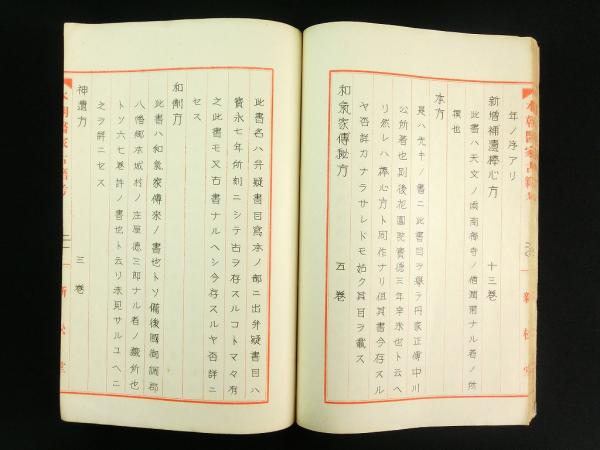 年ノ序アリ
新増補遺捧心方 十三巻
此書ハ天文ノ頃南禅寺ノ僧潤甫ナル者ノ所
撰也
本方
是ハ先キノ書ニ此書目ヲ挙ラ丹家正傳中川
公所著也則後花園院寶徳三年辛未也ト云ヘ
リ然レハ捧心方ト同作ナリ但其書今存スル
ヤ否詳カナラサレドモ姑ク其目ヲ載ス
和氣家傳秘方 五巻
此書名ハ弁疑書目寫本ノ部ニ出弁疑書目ハ
寳永七年所刻ニシテ古ヲ存スルコトママ有
之此書モ又古書ナルヘシ今存スルヤ否詳ニ
セス
和劑方
此書ハ和氣家傳來ノ書也トソ備後國御調郡
八幡郷本城村ノ庄屋德三郎ナル者ノ藏所也
トソ六七巻許ノ書也ト云リ未見サルユヘニ
之ヲ詳ニセス
神遺方 三巻